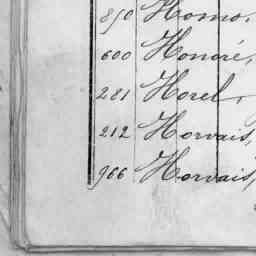 850 Homo,
600 Honoré,
281 Horel,
212 Horvais,
966 Horvais,